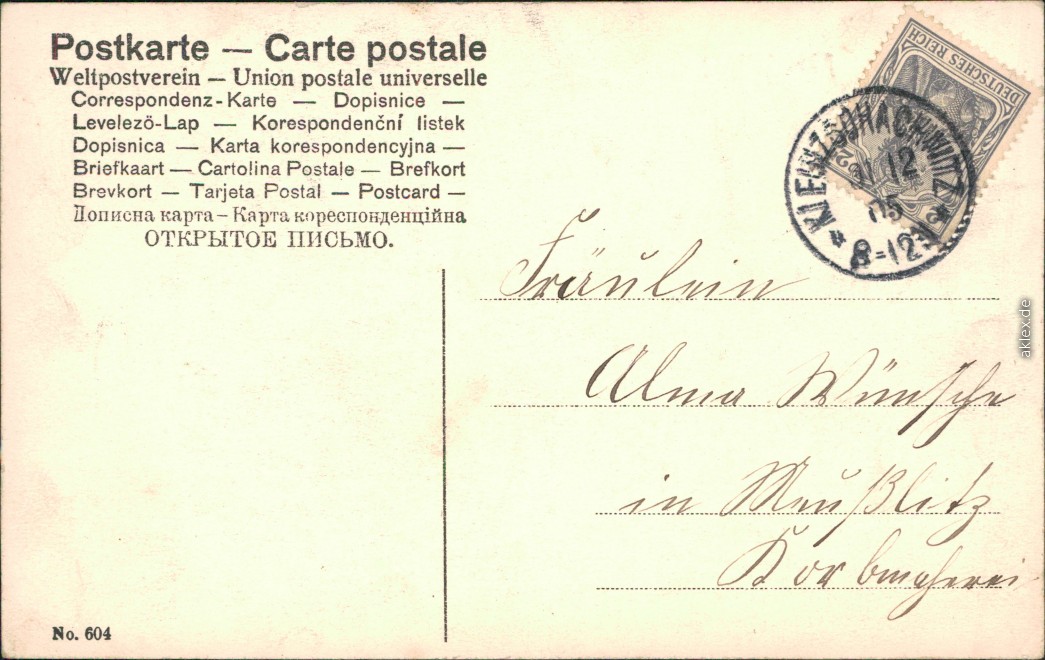 Postkarte — Carte postale
Weltpostverein — Union postale universelle
Correspondenz-Karte — Dopisnice —
Levelezö-Lap — Korespondenční listek
Dopisnica — Karta korespondencyjna —
Briefkaart — Cartolina Postale — Brefkort
Brevkort — Tarjeta Postal — Postcard —
Дописна карта – Карта кореспонденційна
ОТКРЫТОЕ ПИСЬМО.
DEUTSCHES REICH
* KLEINZSCHACHWITZ *
12
05
8-12
Fräulein
Alma Wünsche
in Meußlitz
Korbmacherei
No. 604
aklex.de